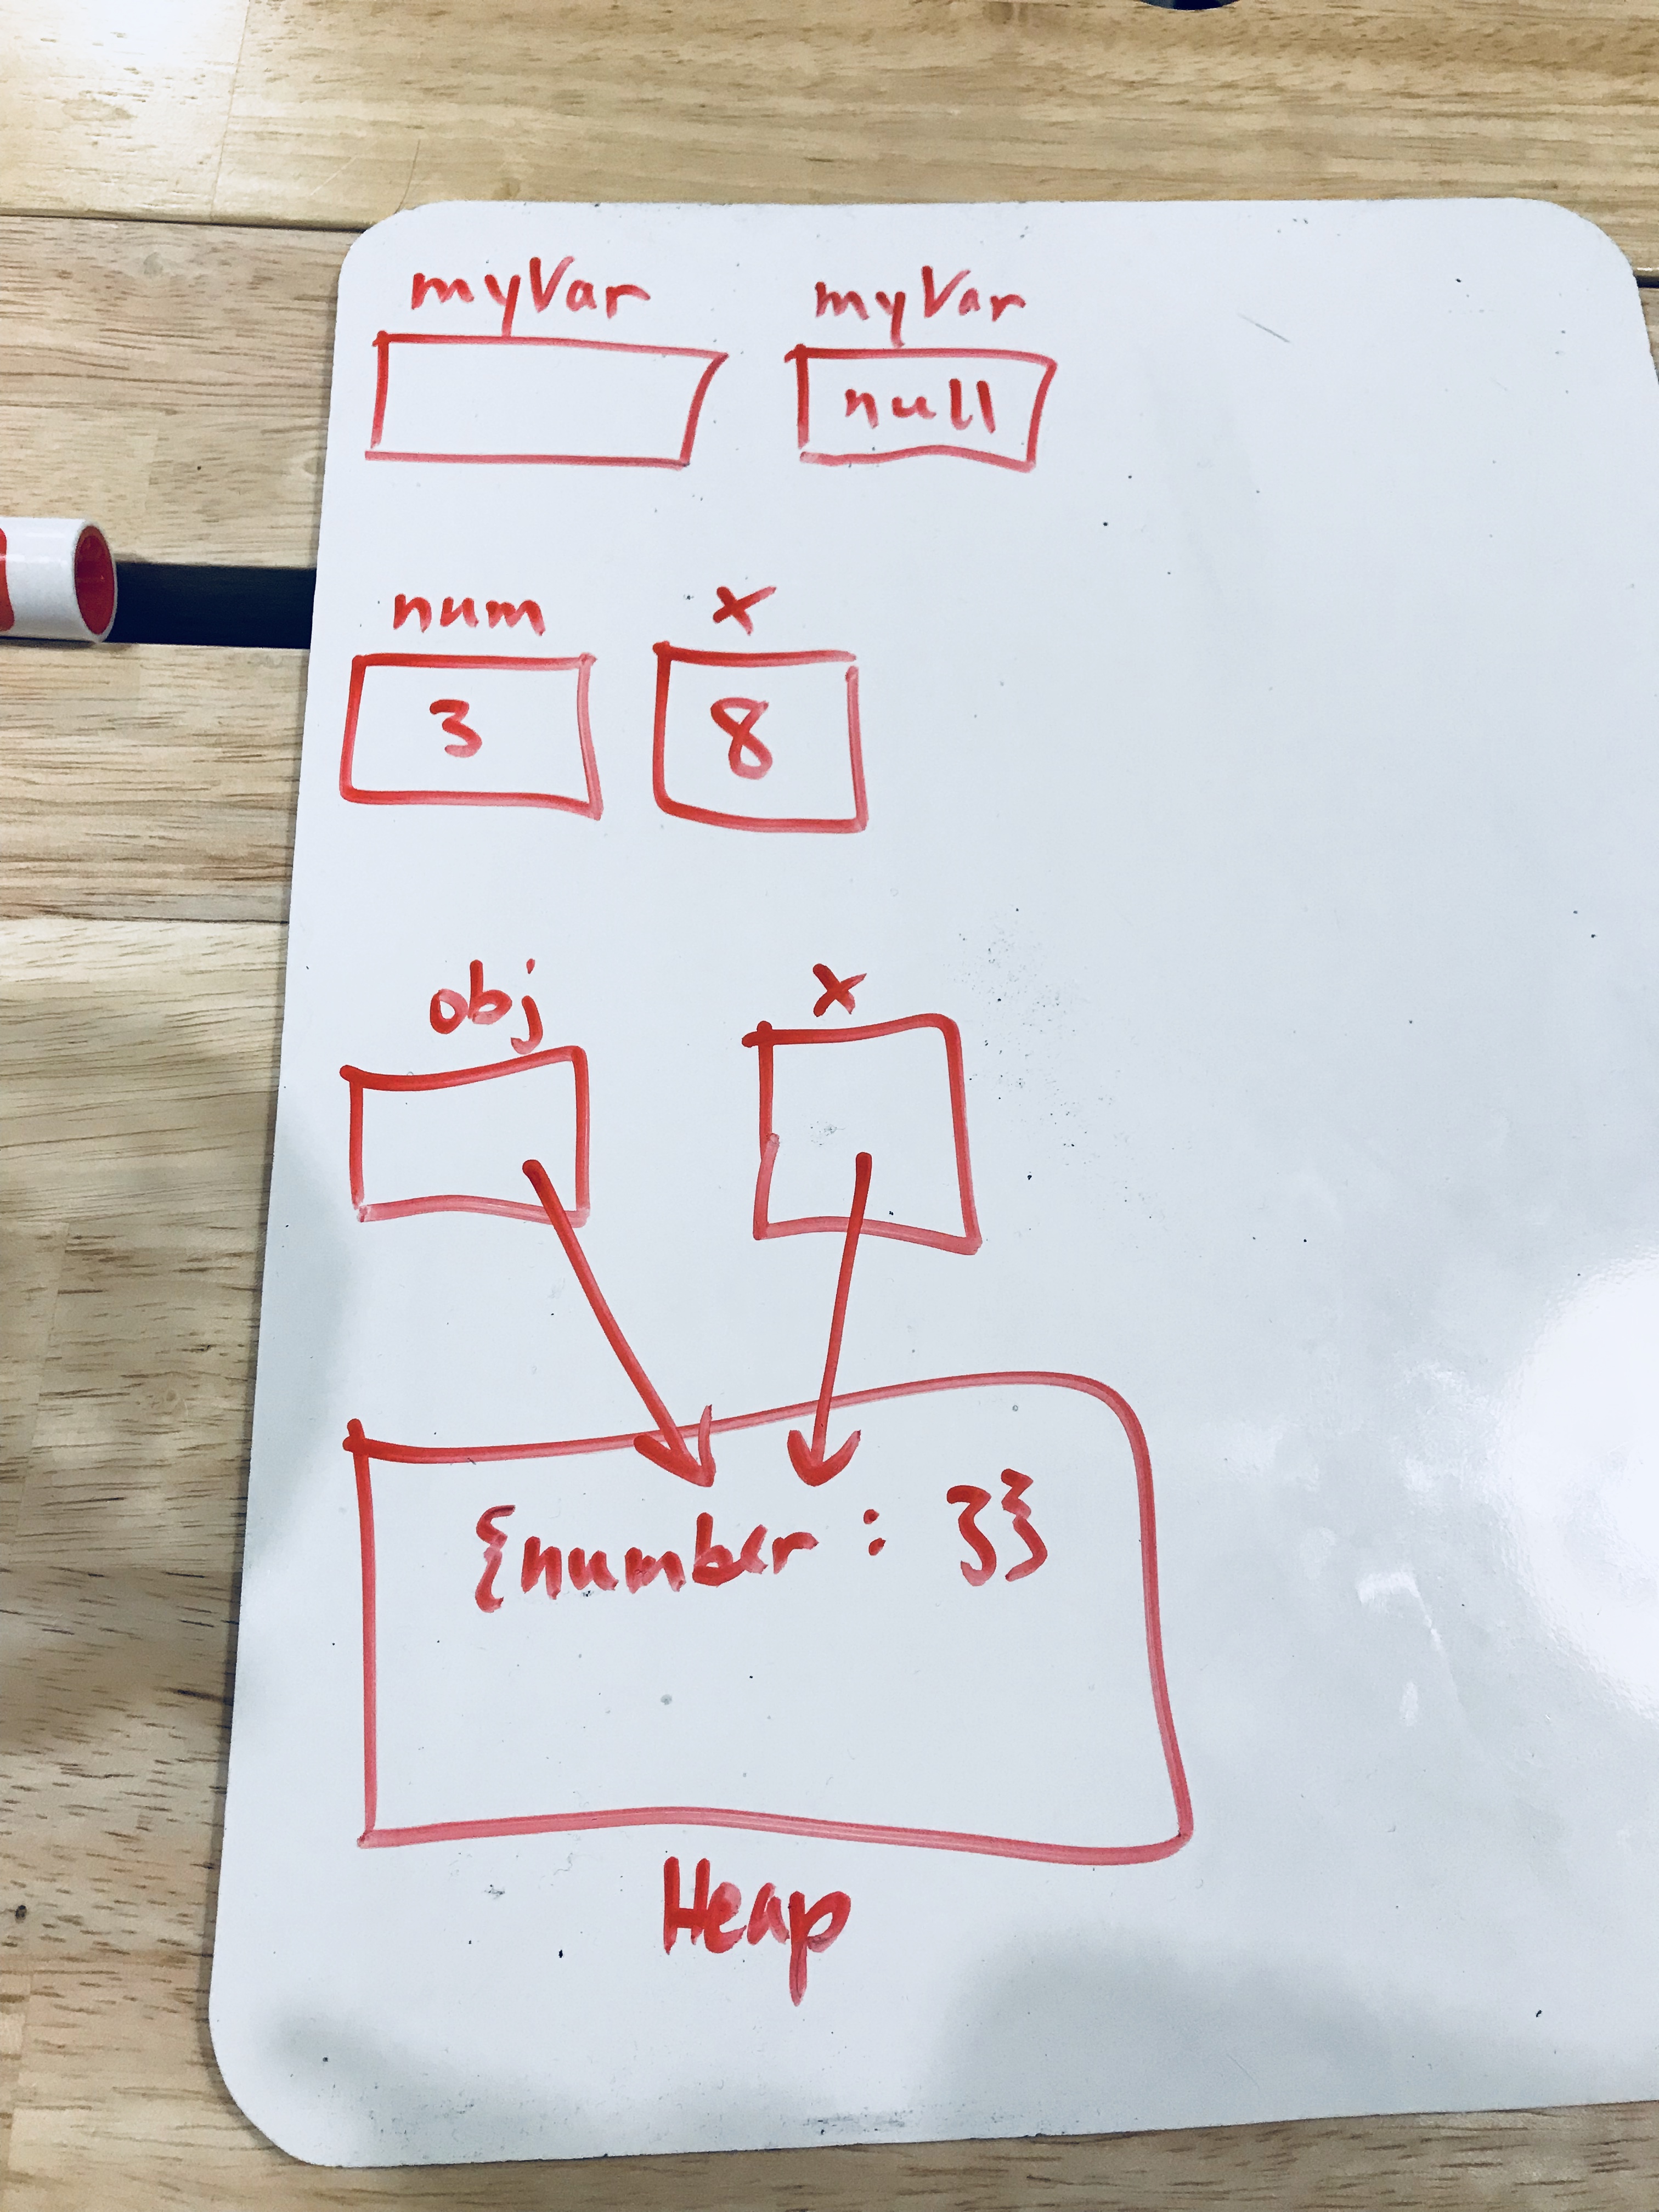 myVar myVar
null
num x
3 8
obj x
{number : 3}
Heap